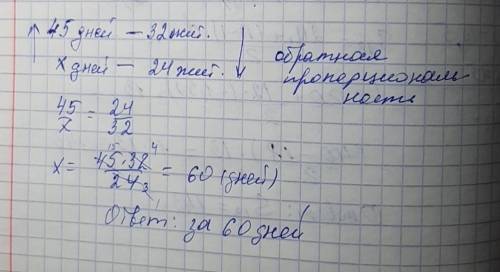 45 дней – 32 жит.
x дней – 24 жит.
обратная
пропорциональ
ность
45/x = 24/32
x = 45·32/24 = 60 (дней)
15 4
3
Ответ: за 60 дней